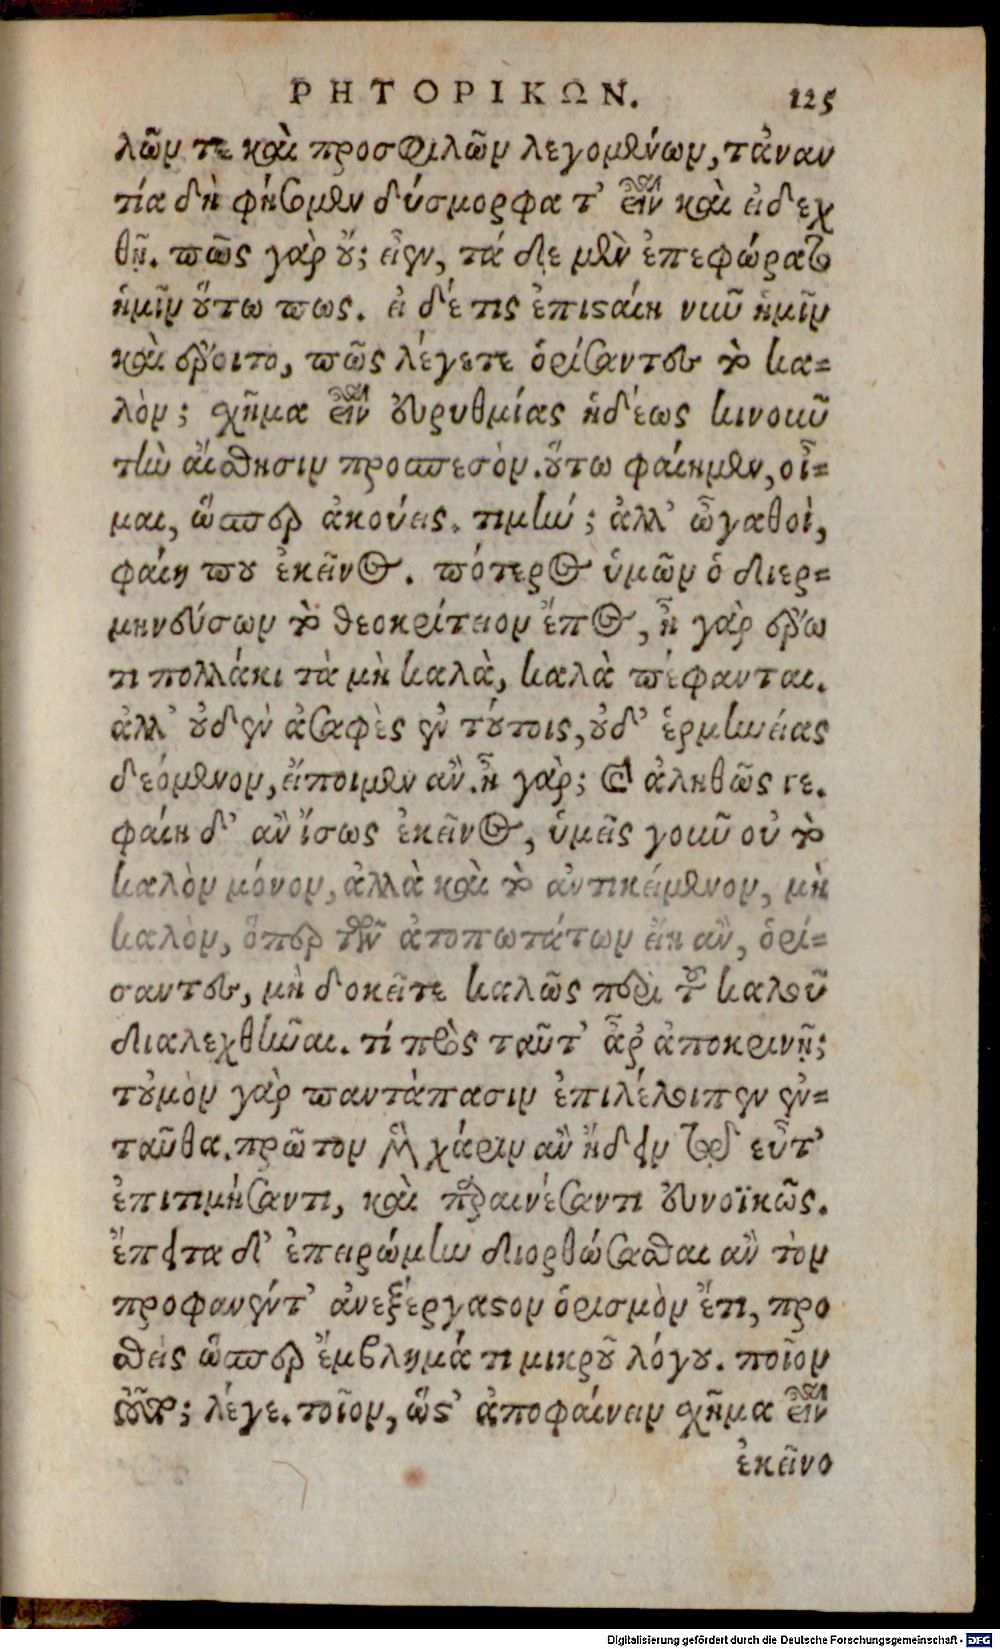 ΡΗΤΟΡΙΚΩΝ. 125
λῶν τε καὶ προσφιλῶν λεγομένων, τἀναν
τία δὴ φήσομεν δύσμορφα τ' εἶναι καὶ ἀιδεχ
θῆ. πῶς γὰρ οὔ; εἶεν, τάδε μὲν ἐπεφώραται
ἡμῖν οὕτω πως. εἰ δέ τις ἐπισταίη νιῦ ἡμῖν
καὶ ἔροιτο, πῶς λέγετε ὁρίσαντες τὸ κα-
λὸν; σχῆμα εἶναι εὐρυθμίας ἡδέως κινοιῦ
τὴν αἴσθησιν προσπεσὸν. οὕτω φαίημεν, οἶ-
μαι, ὥσπερ ἀκούεις. τί μήν; ἀλλ' ὦγαθοὶ,
φαίη που ἐκεῖνος. πότερος ὑμῶν ὁ διερ-
μηνεύσων τὸ θεοκρίτειον ἔπος, ἦ γὰρ ἔρω
τι πολλάκι τὰ μὴ καλὰ, καλὰ πέφανται.
ἀλλ' οὐδὲν ἀσαφὲς ἐν τούτοις, οὐδ' ἑρμηνείας
δεόμενον, εἴποιμεν ἂν. ἦ γὰρ; καὶ ἀληθῶς γε.
φαίη δ' ἂν ἴσως ἐκεῖνος, ὑμεῖς γοιῦ οὐ τὸ
καλὸν μόνον, ἀλλὰ καὶ τὸ ἀντικείμενον, μὴ
καλὸν, ὅπερ τῶν ἀτοπωτάτων εἴη ἂν, ὁρί-
σαντες, μὴ δοκεῖτε καλῶς περὶ τοῦ καλοῦ
διαλεχθῆναι. τί πρὸς ταῦτ' ἆρ' ἀποκρινῆ;
τοὐμὸν γὰρ παντάπασιν ἐπιλέλοιπεν ἐν-
ταῦθα. πρῶτον μὲν χάριν ἂν ᾔδειν τῷδ' εὖτ'
ἐπιτιμήσαντι, καὶ παραινέσαντι εὐνοϊκῶς.
ἔπειτα δ' ἐπειρώμην διορθώσασθαι ἂν τὸν
προφανέντ' ἀνεξέργαστον ὁρισμὸν ἔτι, προ
σθεὶς ὥσπερ ἔμβλημά τι μικροῦ λόγου. ποῖον
οὖν; λέγε. τοῖον, ὥστ' ἀποφαίνειν σχῆμα εἶναι
ἐκεῖνο
Digitalisierung gefördert durch die Deutsche Forschungsgemeinschaft - DFG